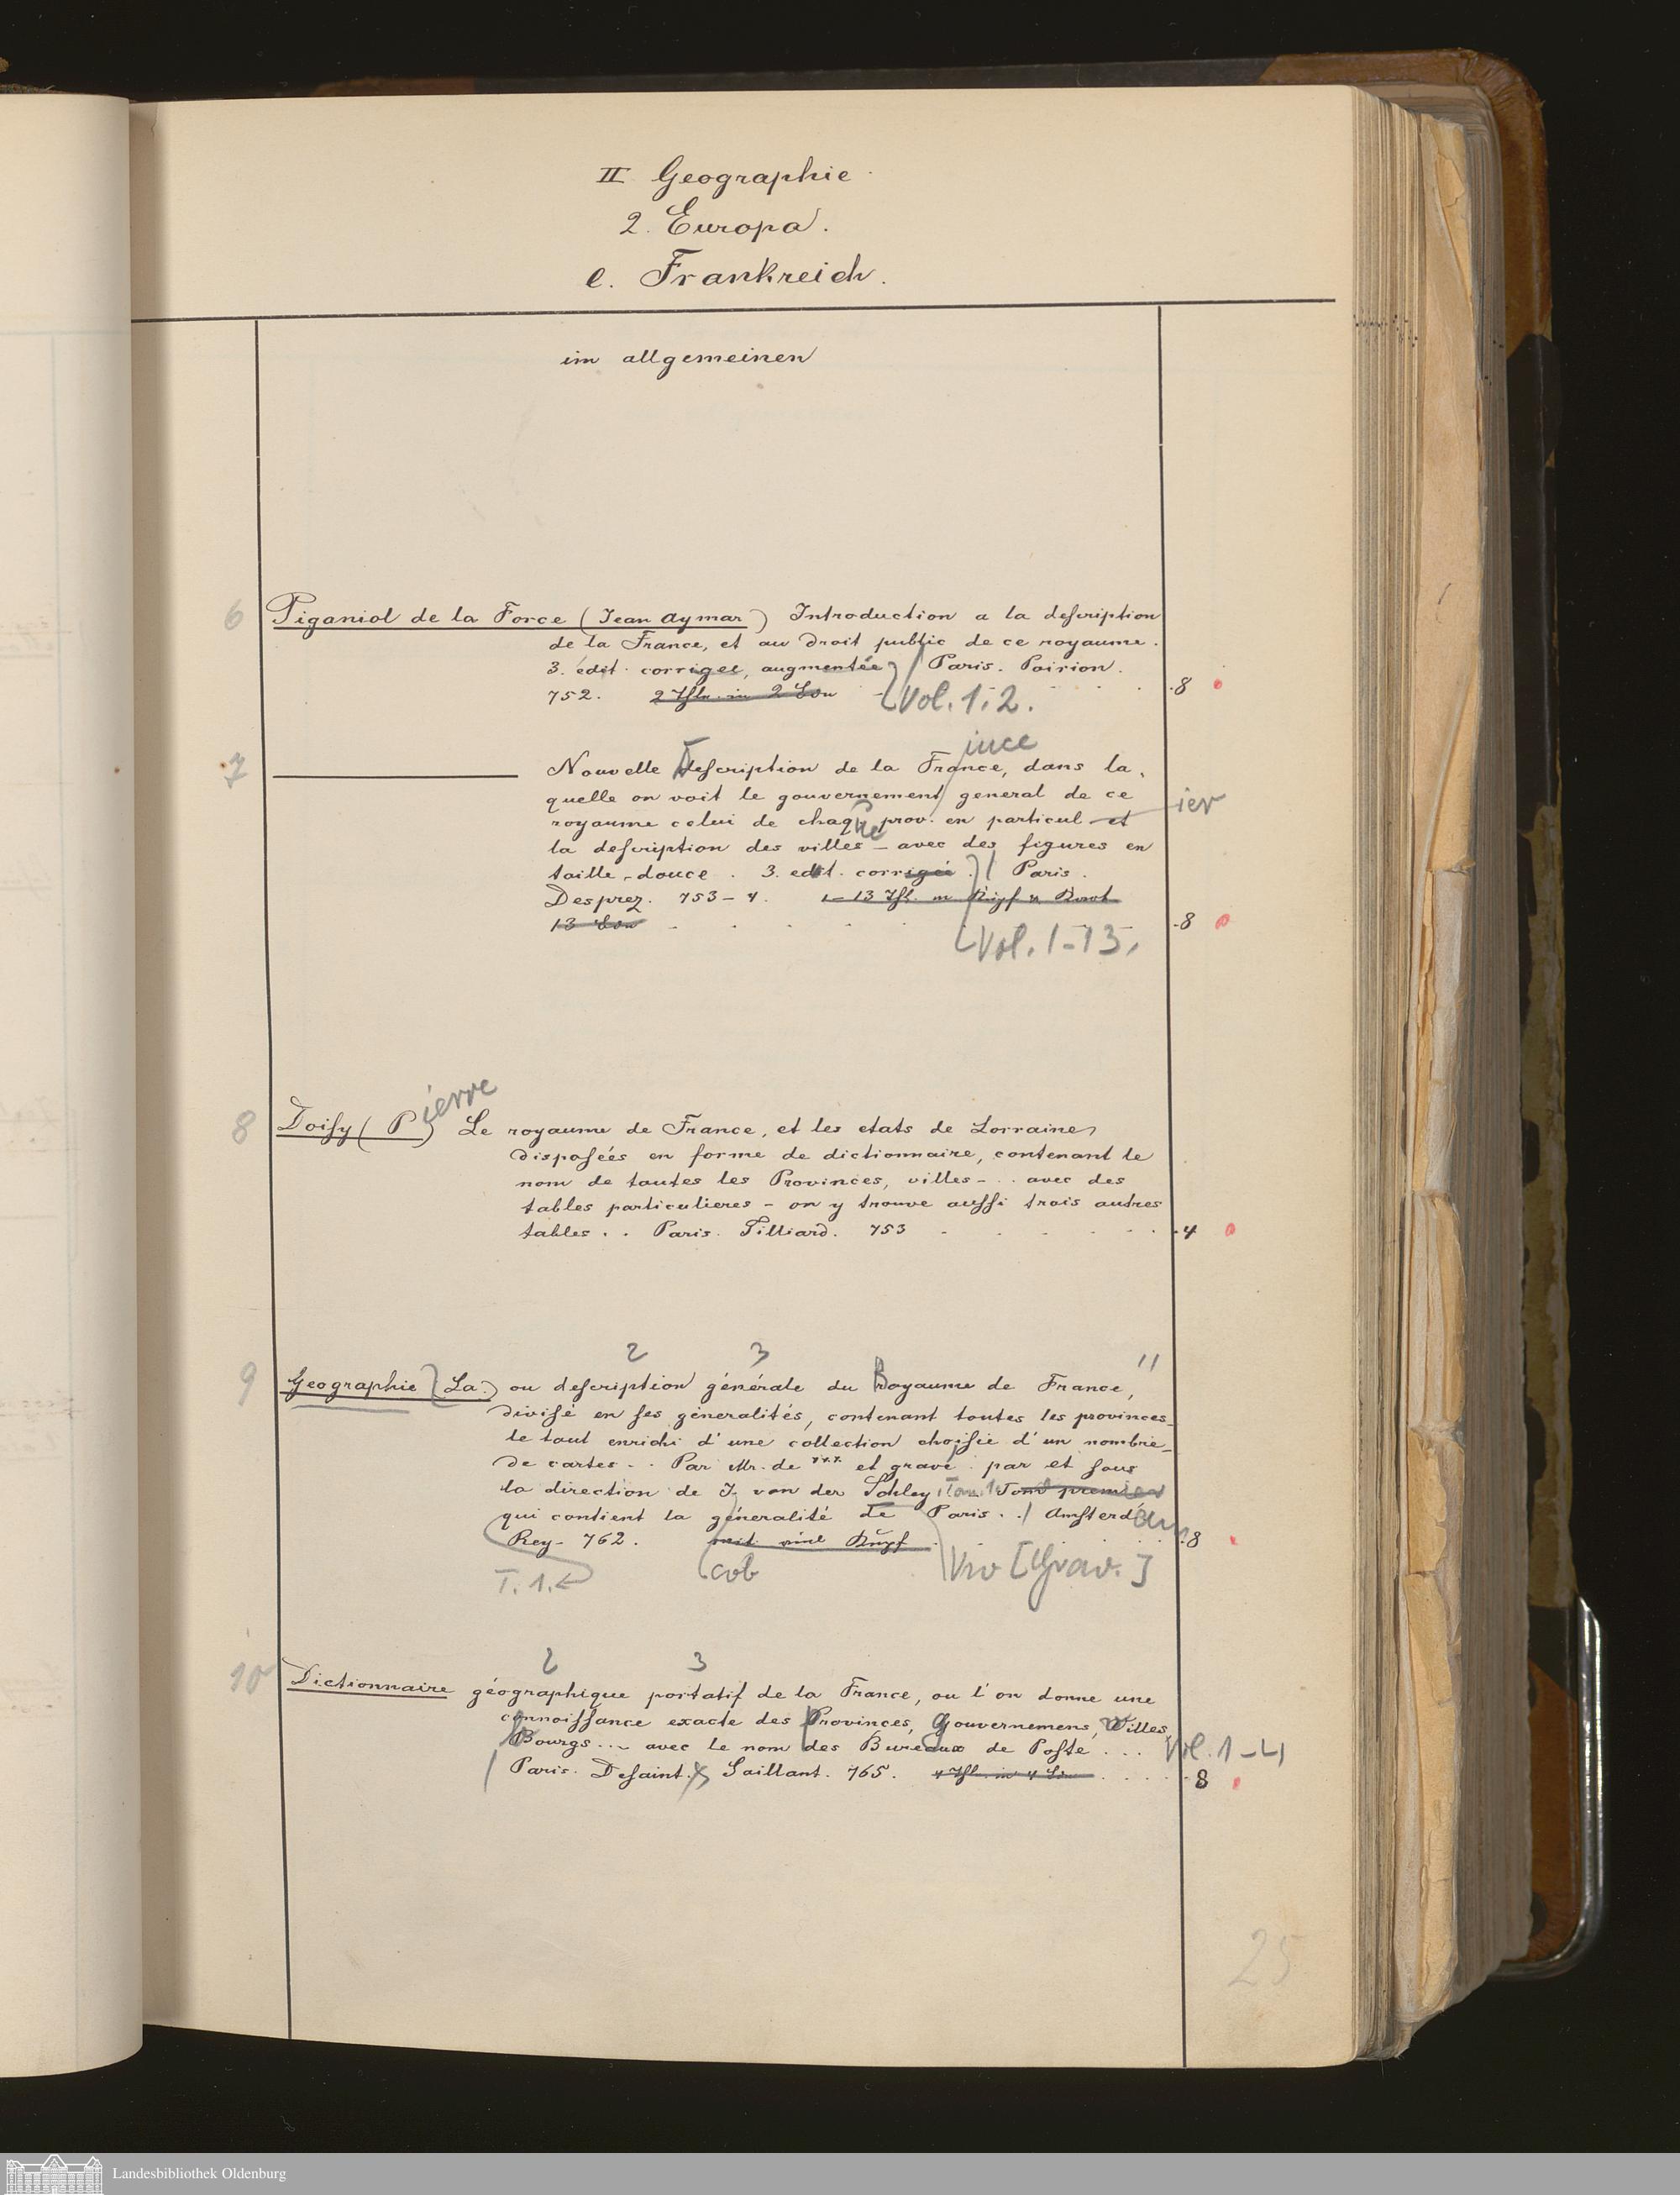 II Geographie
2. Europa.
e. Frankreich.
im allgemeinen
6 Piganiol de la Force (Jean Aymar) Introduction a la description
de la France, et au droit public de ce royaume.
3. edit. corrigee, augmentée / Paris. Poirion.
752. 2 Thle. in 2 Vol. 1.2. 8
7 Nouvelle Description de la France, dans la
ince
quelle on voit le gouvernement general de ce
royaume celui de chaque prov. en particul et ier
la description des villes – avec des figures en
taille-douce. 3. edit. corrigée. / Paris.
Desprez. 753–4. 1–13 Thl. m. Kupf u.
13 8
Vol. 1–13.
ierre
8 Doisy (P) Le royaume de France, et les etats de Lorraine,
disposées en forme de dictionnaire, contenant le
nom de toutes les Provinces, villes – . . avec des
tables particulieres – on y trouve aussi trois autres
tables . . Paris. Tilliard. 753 4
2 3 11
9 Geographie (La) ou description générale du Royaume de France,
divisé en ses géneralités, contenant toutes les provinces
le tout enrichi d'une collection choisie d'un nombre
de cartes . . Par Mr. de *** et gravé par et sous
la direction de J. van der Schley Tom. 1 Tom premier
qui contient la géneralité de Paris . . / Amsterdam
Rey – 762. mit viel Kupf 8
T. 1. [Grav.]
2 3
10 Dictionnaire géographique portatif de la France, ou l'on donne une
connoissance exacte des Provinces, Gouvernemens, Villes,
Bourgs . . – avec le nom des Bureaux de Poste . . . Vol. 1–4
/ Paris. Desaint & Saillant. 765. 4 Thl. in 4 8
25
Landesbibliothek Oldenburg